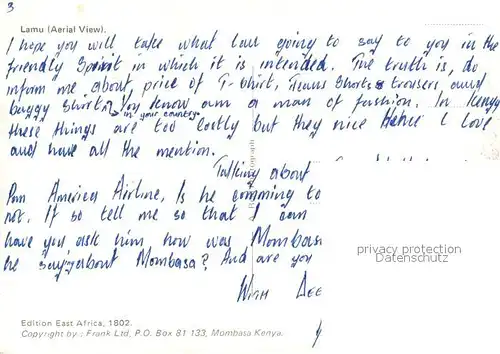 3
Lamu (Aerial View).
I hope you will take what I am going to say to you in the
friendly spirit in which it is intended. The truth is, do
inform me about price of T-shirt, Jeans Shorts trousers, and
baggy shirt in your country? You know am a man of fashion. In Kenya
these things are too costly but they nice Hence I love
and have all the mention.
Talking about
Pan America Airline, Is he comming to
not. If so tell me so that I can
have you ask him how was Mombasa
he say about Mombasa? And are you
With Dee
privacy protection
Datenschutz
Edition East Africa, 1802.
Copyright by: Frank Ltd, P.O. Box 81 133, Mombasa Kenya.